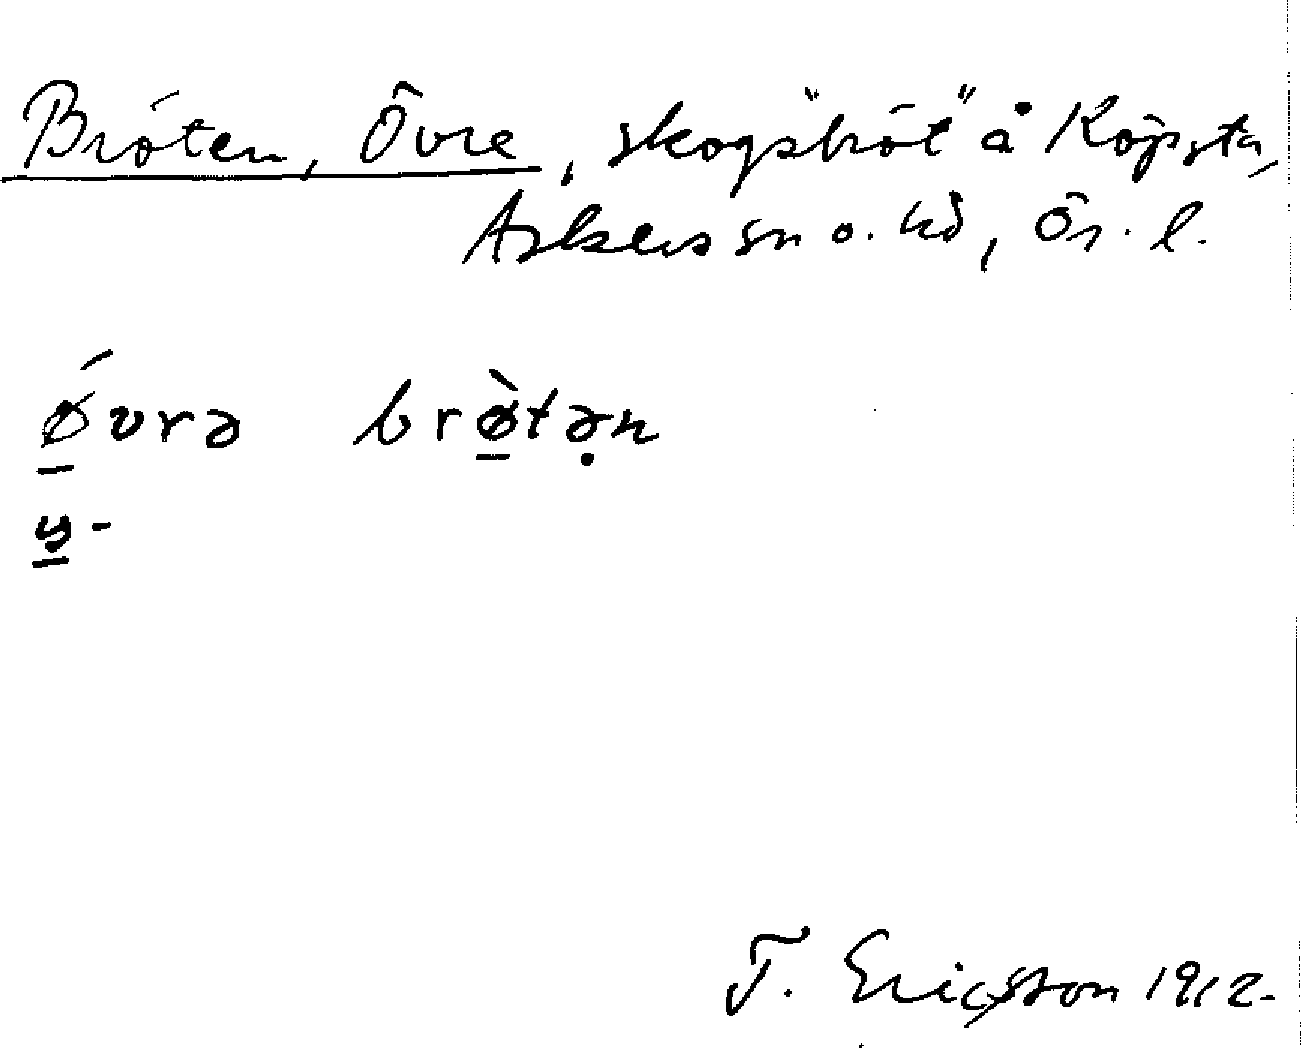 Bröten, Övre, skogs"bröt" å Köpsta,
Askers sn o. hd, Ör. l.
ǿvrə brø̀tə̣n
y̠-
T. Ericsson 1912.